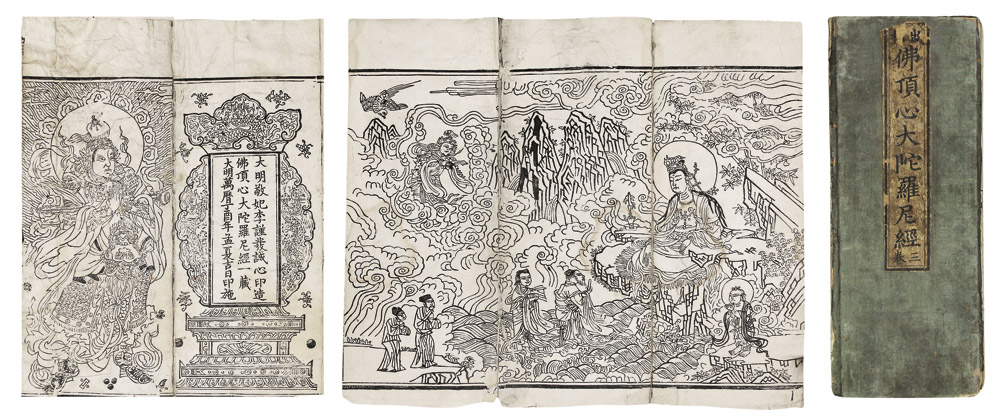 大明敬妃李謹發誠心印造
佛頂心大陀羅尼經一藏
大明萬曆丁酉年孟夏吉日印施
佛頂心大陀羅尼經
三